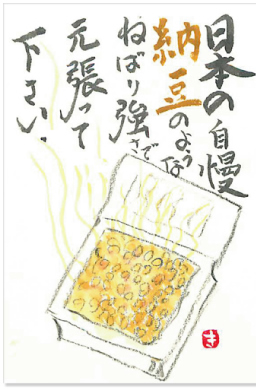 日本の自慢
納豆のような
ねばり強さで
元張って
下さい。
き